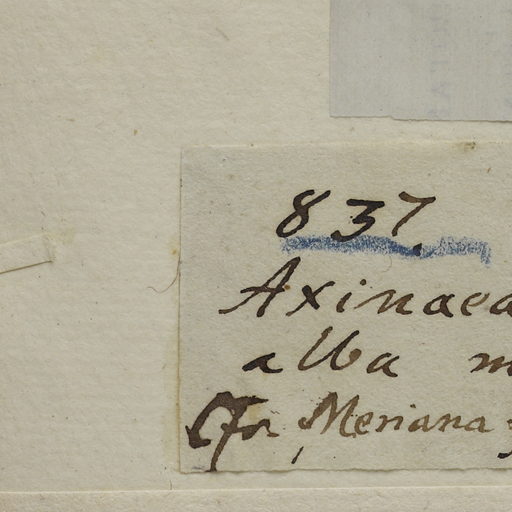 837.
Axinaea
alba m
(for Meriana